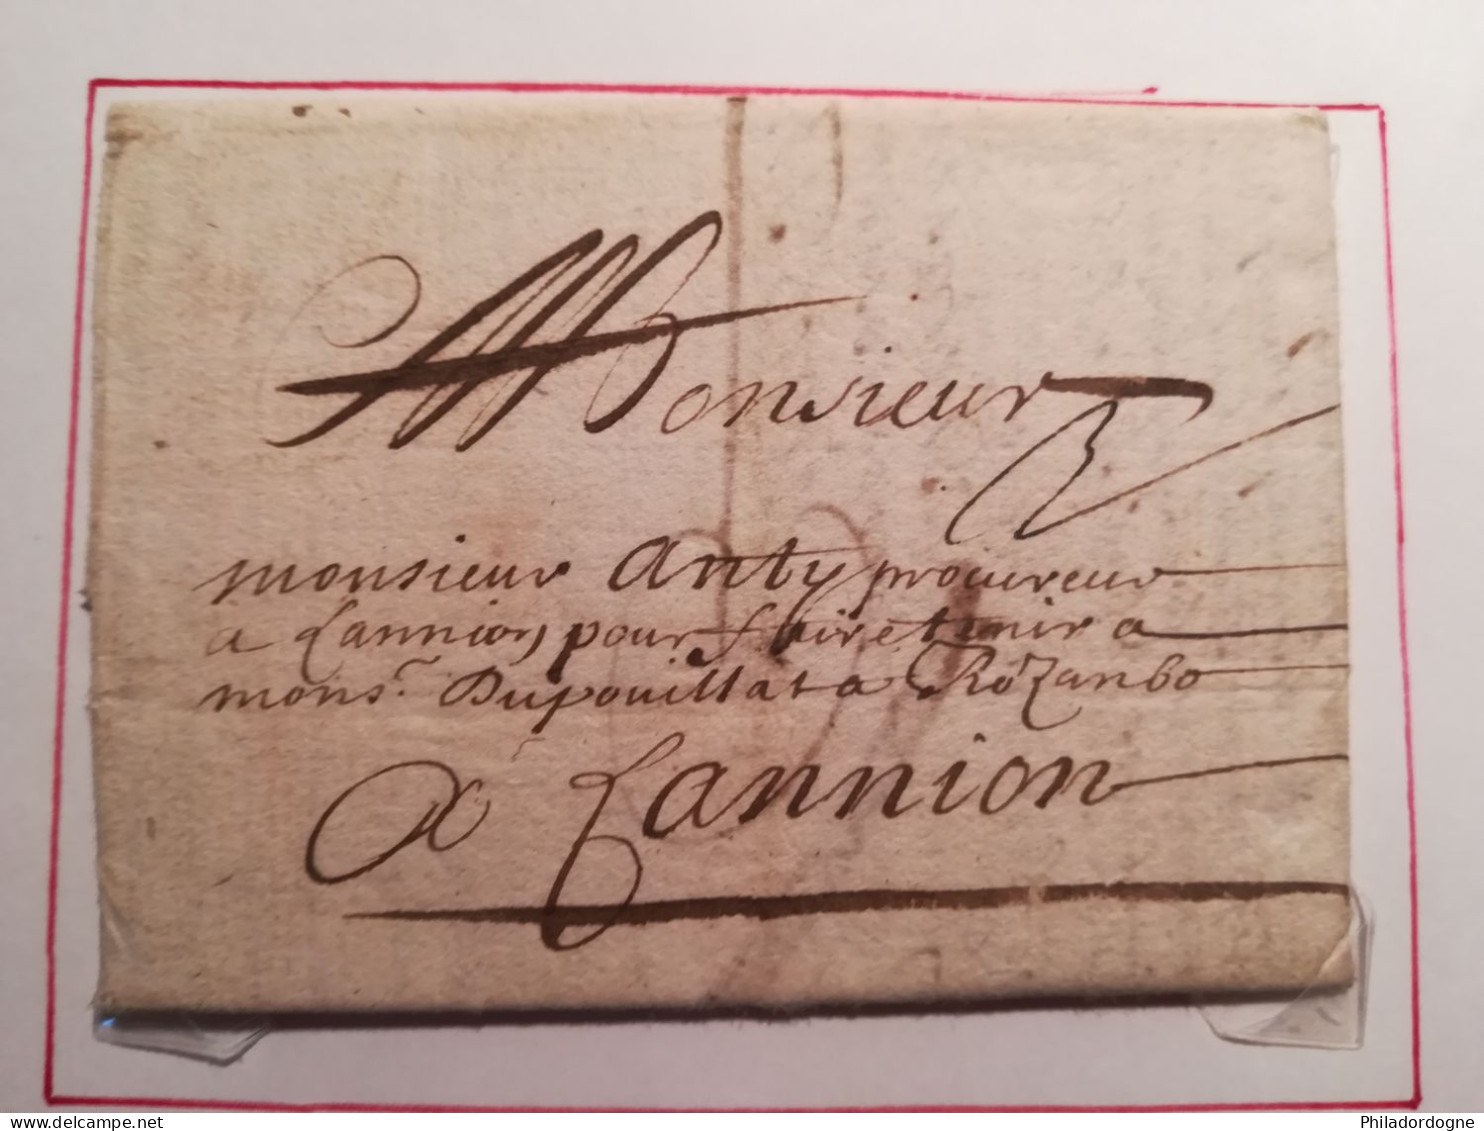 Monsieur
monsieur Anty procureur
a Lannion pour faire tenir a
mons.r Dupouillat a Rozanbo
A Lannion
www.delcampe.net
Philadordogne